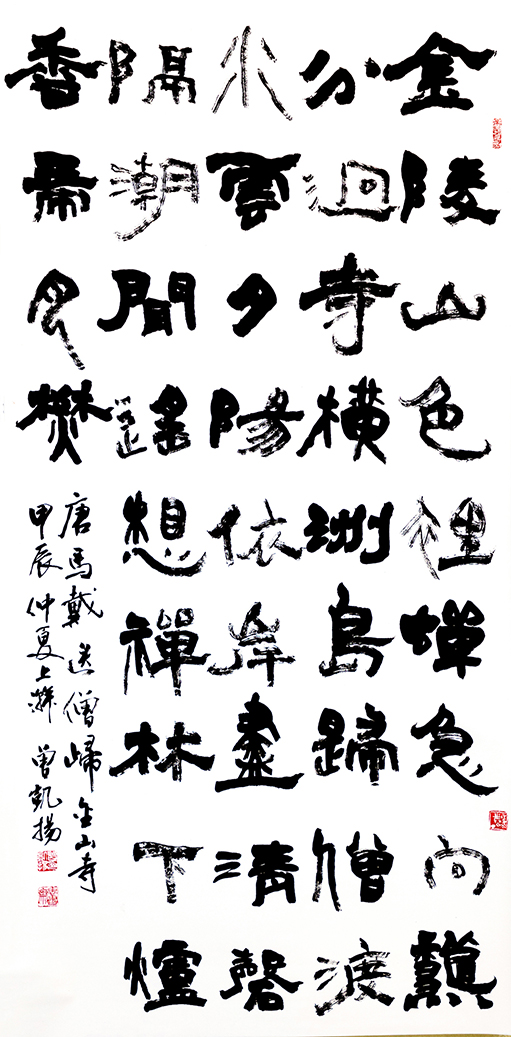 金陵山色裡蟬急向龝
分迴寺橫洲島歸僧渡
水雲夕陽依岸盡清磬
隔潮聞遙想禪林下爐
香帶月燓
唐馬戴送僧歸金山寺
甲辰仲夏上澣曾凱揚